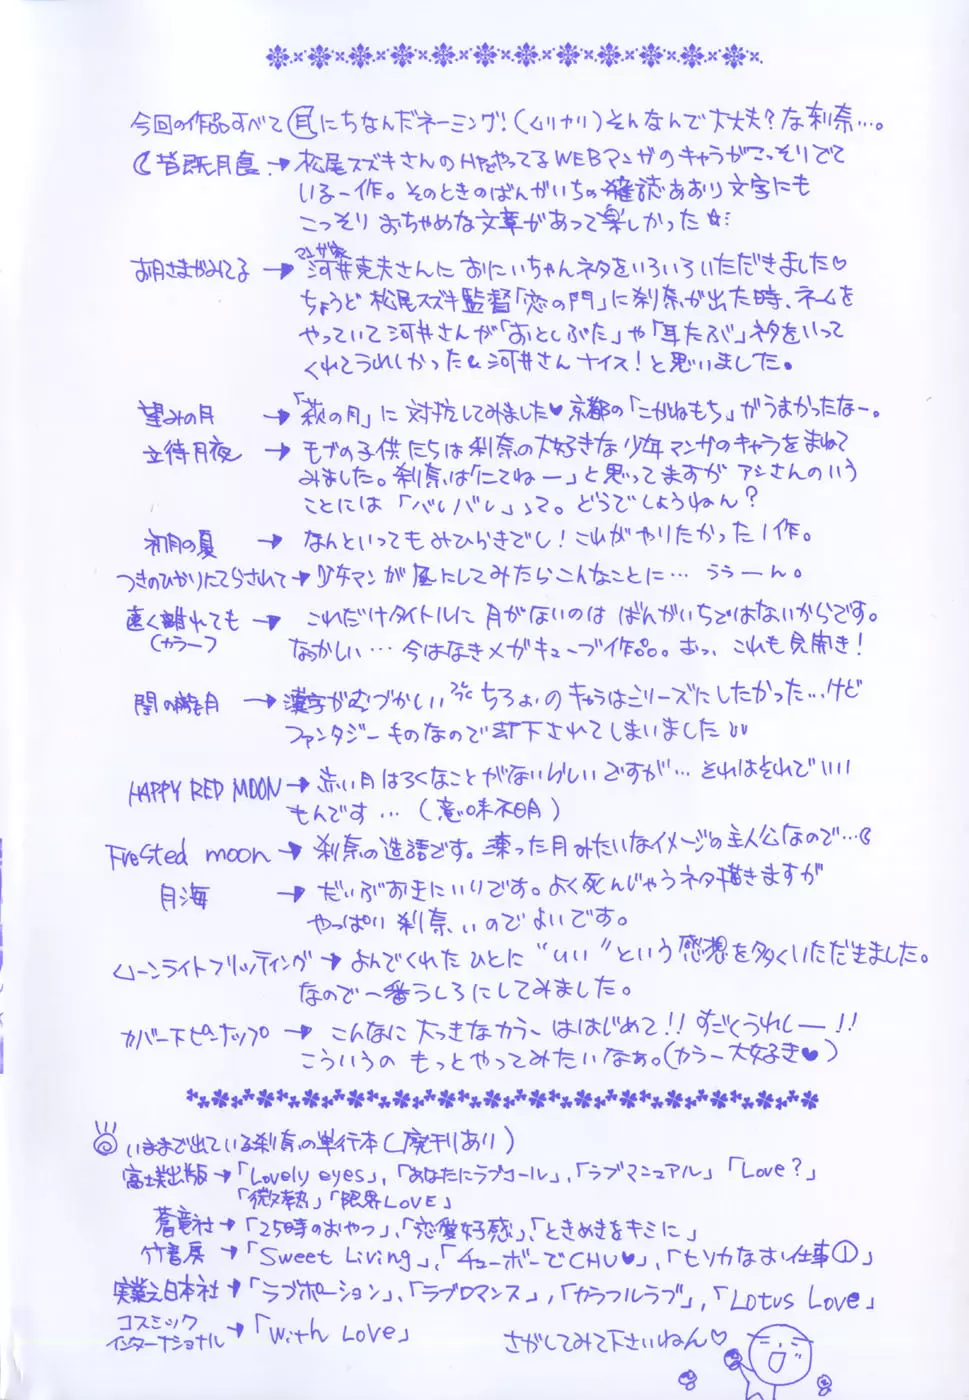 今回の作品すべて月にちなんだネーミング!(ムリヤリ)そんなんで大丈夫?な刹奈…。
皆既月食 → 松尾スズキさんのHPでやってるWEBマンガのキャラがこっそりでて
いる一作。そのときのばんがいちの雑誌あおり文字にも
こっそりおちゃめな文章があって楽しかった☆
マンガ家
お月さまがみてる → 河井克夫さんにおにいちゃんネタをいろいろいただきました♡
ちょうど松尾スズキ監督「恋の門」に刹奈が出た時、ネームを
やっていて河井さんが「おとしぶた」や「耳たぶ」ネタをいって
くれてうれしかった 河井さんナイス!と思いました。
望みの月 → 「萩の月」に対抗してみました♥京都の「こがねもち」がうまかったなー。
立待月夜 → モブの子供たちは刹奈の大好きな少年マンガのキャラをまねて
みました。刹奈は「にてねー」と思ってますがアシさんのいう
ことには「バレバレ」って。どうでしょうねん?
初月の夏 → なんといってもみひらきでし!これがやりたかった1作。
つきのひかりにてらされて → 少年マンガ風にしてみたらこんなことに…ううーん。
遠く離れても → これだけタイトルに月がないのはばんがいちではないからです。
(カラー) なつかしい…今はなきメガキューブ作品。おっ、これも見開き!
闇の朧月 → 漢字がむづかしい ちろょいのキャラはシリーズにしたかった…けど
ファンタジーものなので却下されてしまいました
HAPPY RED MOON → 赤い月はろくなことがないらしいですが…それはそれでいい
もんです…(意味不明)
Frosted moon → 刹奈の造語です。凍った月みたいなイメージの主人公なので…
月海 → だいぶおきにいりです。よく死んじゃうネタ描きますが
やっぱり刹奈いのでよいです。
ムーンライトフリッティング → よんでくれたひとに"いい"という感想を多くいただきました。
なので一番うしろにしてみました。
カバー下ピンナップ → こんなに大っきなカラーははじめて!!すごくうれしー!!
こういうのもっとやってみたいなぁ。(カラー大好き♥)
いままで出ている刹奈の単行本(廃刊あり)
富士美出版→「Lovely eyes」、「あなたにラブコール」、「ラブマニュアル」「Love?」
「微熱」「限界LOVE」
蒼竜社→「25時のおやつ」、「恋愛好感」、「ときめきをキミに」
竹書房→「Sweet Living」、「チューボーでCHU♥」、「ヒソカなお仕事①」
実業之日本社→「ラブポーション」、「ラブロマンス」、「カラフルラブ」、「Lotus Love」
コスミック
インターナショナル→「With Love」 さがしてみて下さいねん♡